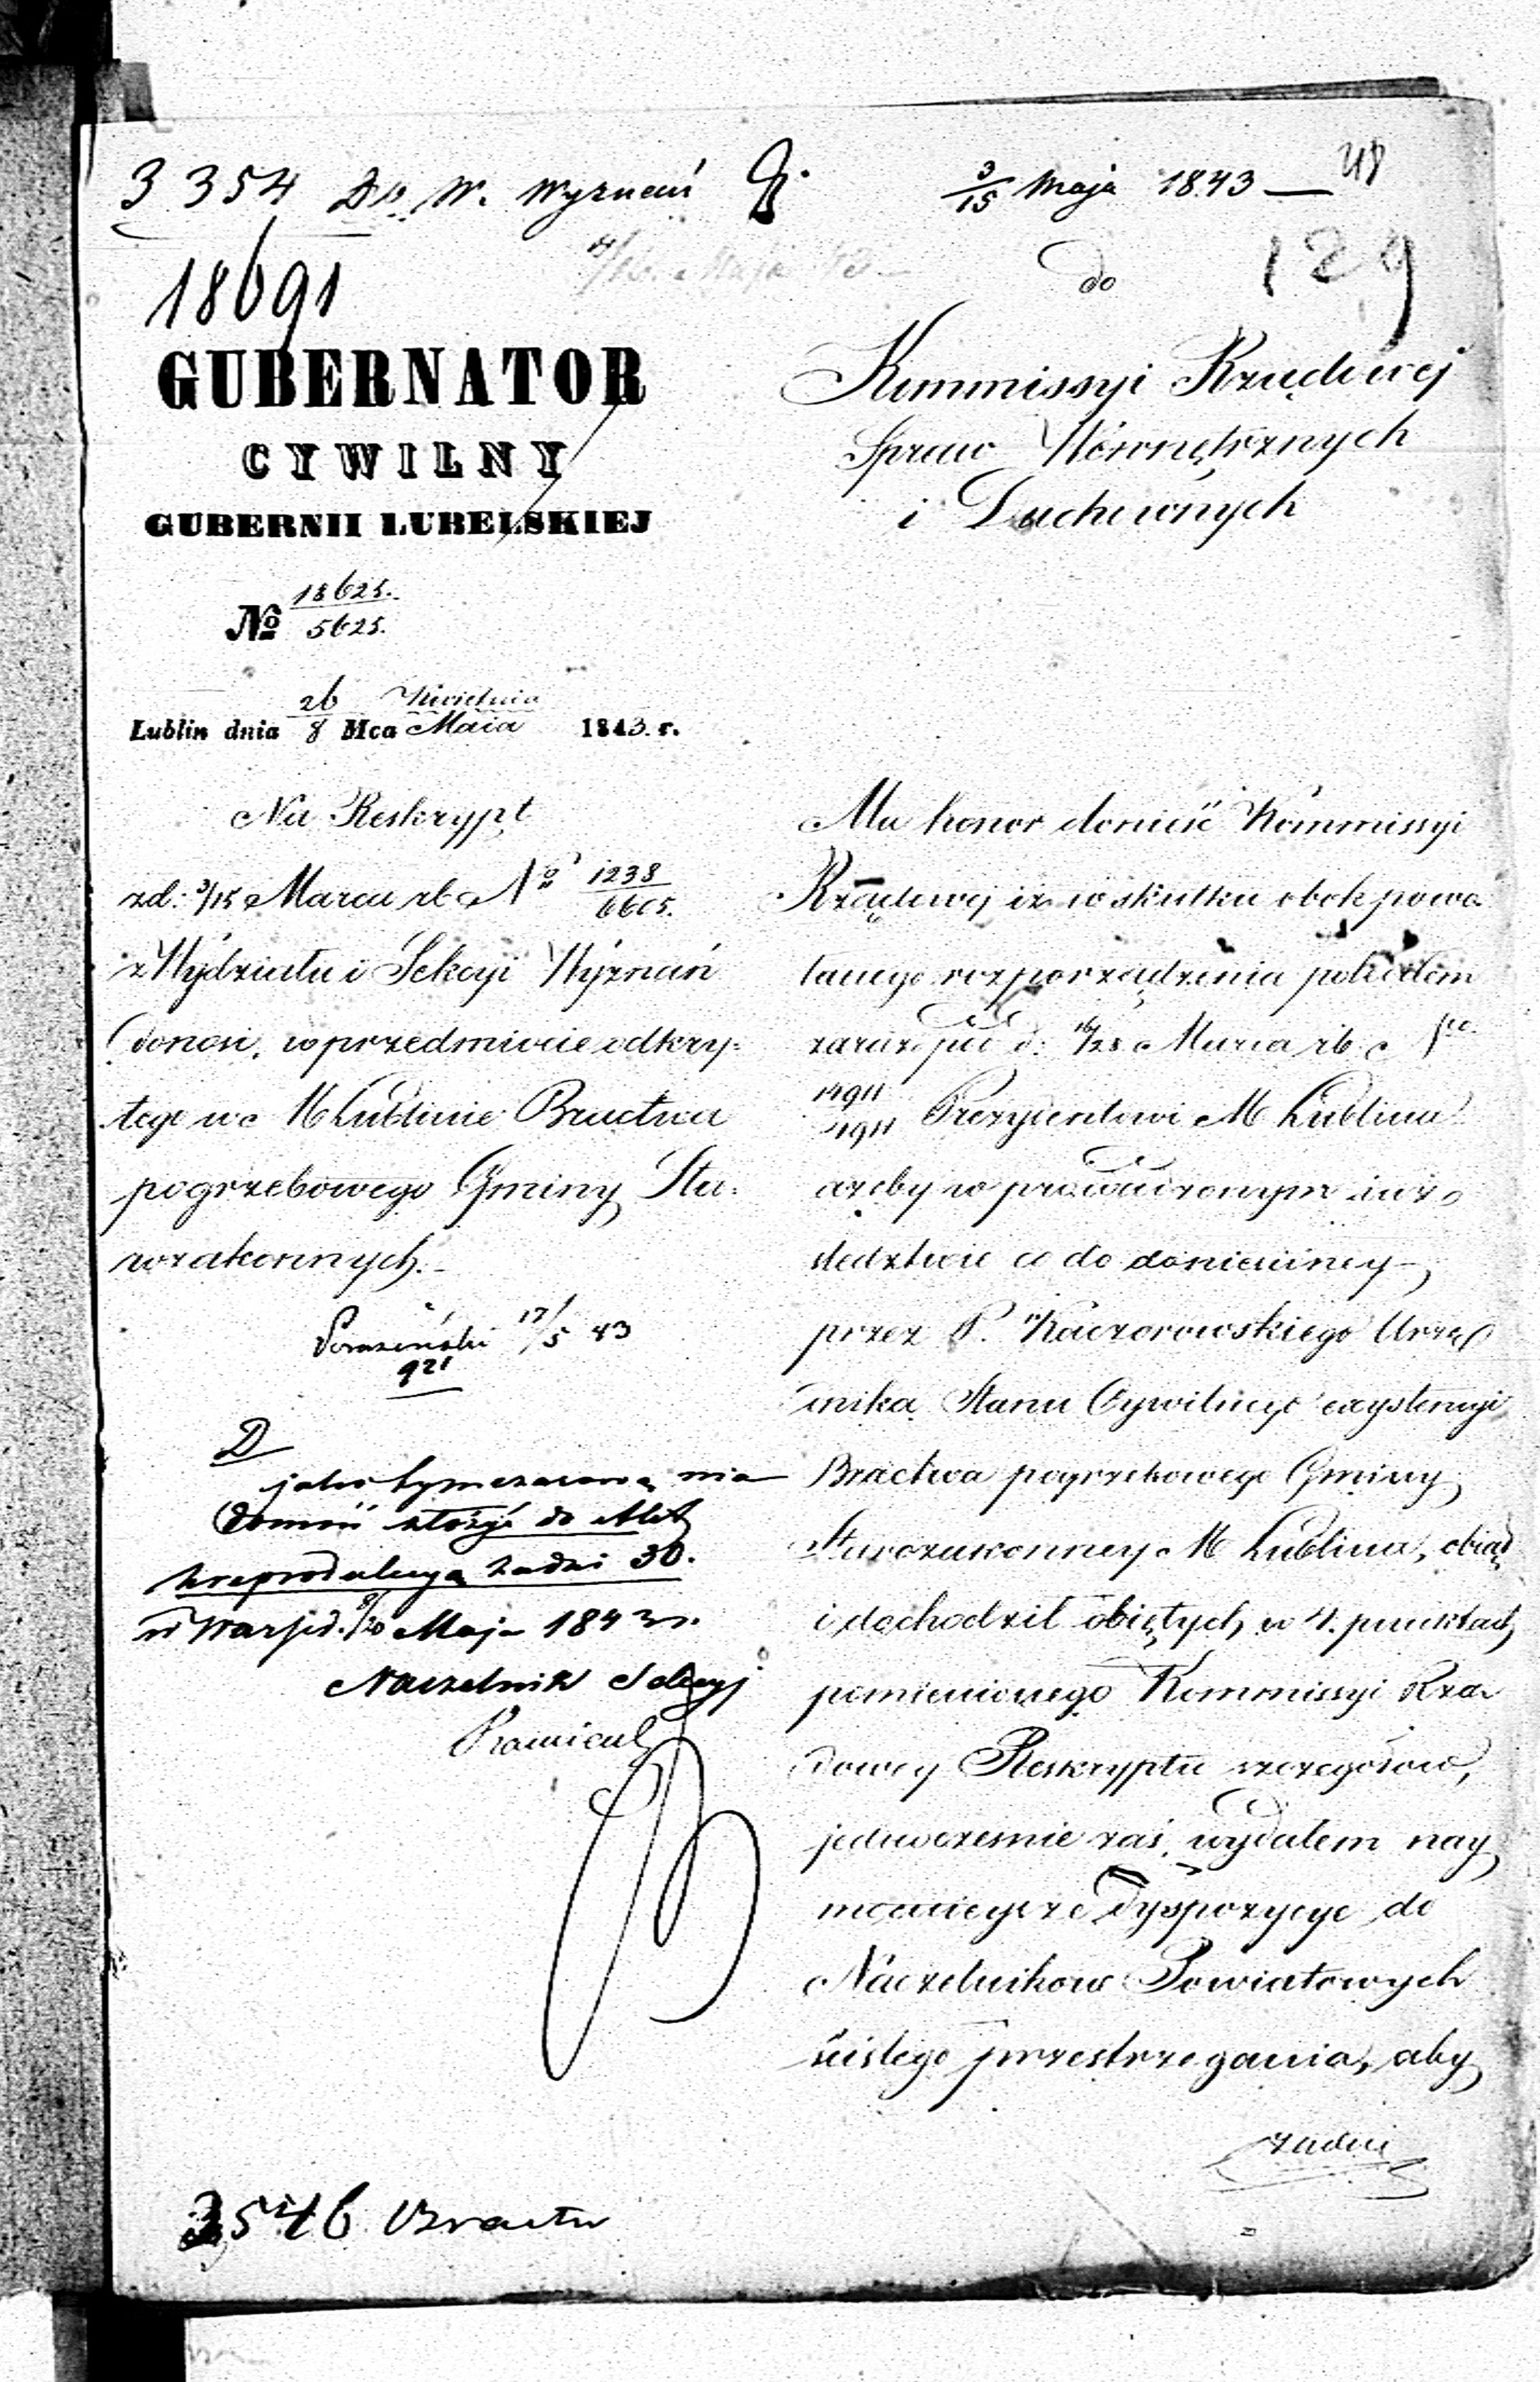 3354 D. W. Wyznań
3/15 Maja 1843 —
48
18691
Maja 43
do
129
GUBERNATOR
CYWILNY
GUBERNII LUBELSKIEJ
Kommissyi Rządowej
Spraw Wewnętrznych
i Duchownych
№ 18625. / 5625.
Lublin dnia 26/8 Mca Kwietnia/Maia 1843. r.
Na Reskrypt
zd: 3/15 Marca rb No 1238/6605.
z Wydziału i Sekcyi Wyznań
donosi, w przedmiocie odkry=
tego w M Lublinie Bractwa
pogrzebowego Gminy Sta=
rozakonnych.
17/5 43
921
D
jako tymczasową wia
domość złożyć do Akt
z reprodukcyą za dni 30.
w Warsz d. 8/20 Maja 1843 r.
Naczelnik Sekcyj
Ma honor donieść Kommissyi
Rządowej iż w skutku obok powo
łanego rozporządzenia poleciłem
zaraz pod d: 16/28 Marca rb. No
14911/4911 Prezydentowi M Lublina
ażeby w prowadzonym iuż
śledztwie co do doniesioney
przez P. Kaczorowskiego Urzę
dnika Stanu Cywilnego exystencyi
Bractwa pogrzebowego Gminy
Starozakonney M Lublina, obiął
i dochodził obiętych w 4. punktach
pomienionego Kommissyi Rzą
dowey Reskryptu szczegółów,
jednocześnie zaś wydałem nay
mocnieysze dyspozycye do
Naczelników Powiatowych
ścisłego przestrzegania, aby
żadne
3546 Bractw